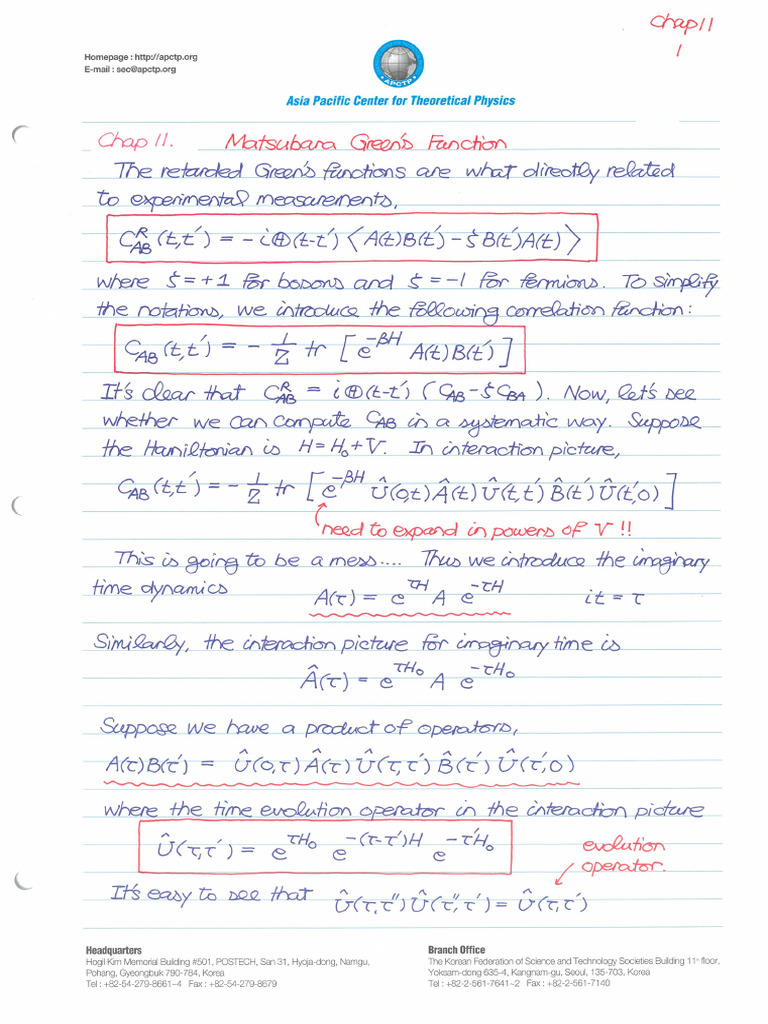 Chap 11
1
Homepage : http://apctp.org
E-mail : sec@apctp.org
APCTP
Asia Pacific Center for Theoretical Physics
Chap 11. Matsubara Green's Function
The retarded Green's functions are what directly related
to experimental measurements,
C^R_AB (t,t′) = -iΘ(t-t′) ⟨A(t)B(t′) - ζB(t′)A(t)⟩
where ζ=+1 for bosons and ζ=-1 for fermions. To simplify
the notations, we introduce the following correlation function:
C_AB (t,t′) = - 1/Z tr [e^{-βH} A(t)B(t′)]
It's clear that C^R_AB = iΘ(t-t′) (C_AB - ζC_BA). Now, let's see
whether we can compute C_AB in a systematic way. Suppose
the Hamiltonian is H=H₀+V. In interaction picture,
C_AB (t,t′) = - 1/Z tr [e^{-βH} Û(0,t)Â(t)Û(t,t′)B̂(t′)Û(t′,0)]
need to expand in powers of V !!
This is going to be a mess.... Thus we introduce the imaginary
time dynamics A(τ) = e^{τH} A e^{-τH} it = τ
Similarly, the interaction picture for imaginary time is
Â(τ) = e^{τH₀} A e^{-τH₀}
Suppose we have a product of operators,
A(τ)B(τ′) = Û(0,τ)Â(τ)Û(τ,τ′)B̂(τ′)Û(τ′,0)
where the time evolution operator in the interaction picture
Û(τ,τ′) = e^{τH₀} e^{-(τ-τ′)H} e^{-τ′H₀}
evolution
operator.
It's easy to see that Û(τ,τ″)Û(τ″,τ′) = Û(τ,τ′)
Headquarters
Hogil Kim Memorial Building #501, POSTECH, San 31, Hyoja-dong, Namgu,
Pohang, Gyeongbuk 790-784, Korea
Tel : +82-54-279-8661~4 Fax : +82-54-279-8679
Branch Office
The Korean Federation of Science and Technology Societies Building 11th floor,
Yoksam-dong 635-4, Kangnam-gu, Seoul, 135-703, Korea
Tel : +82-2-561-7641~2 Fax : +82-2-561-7140